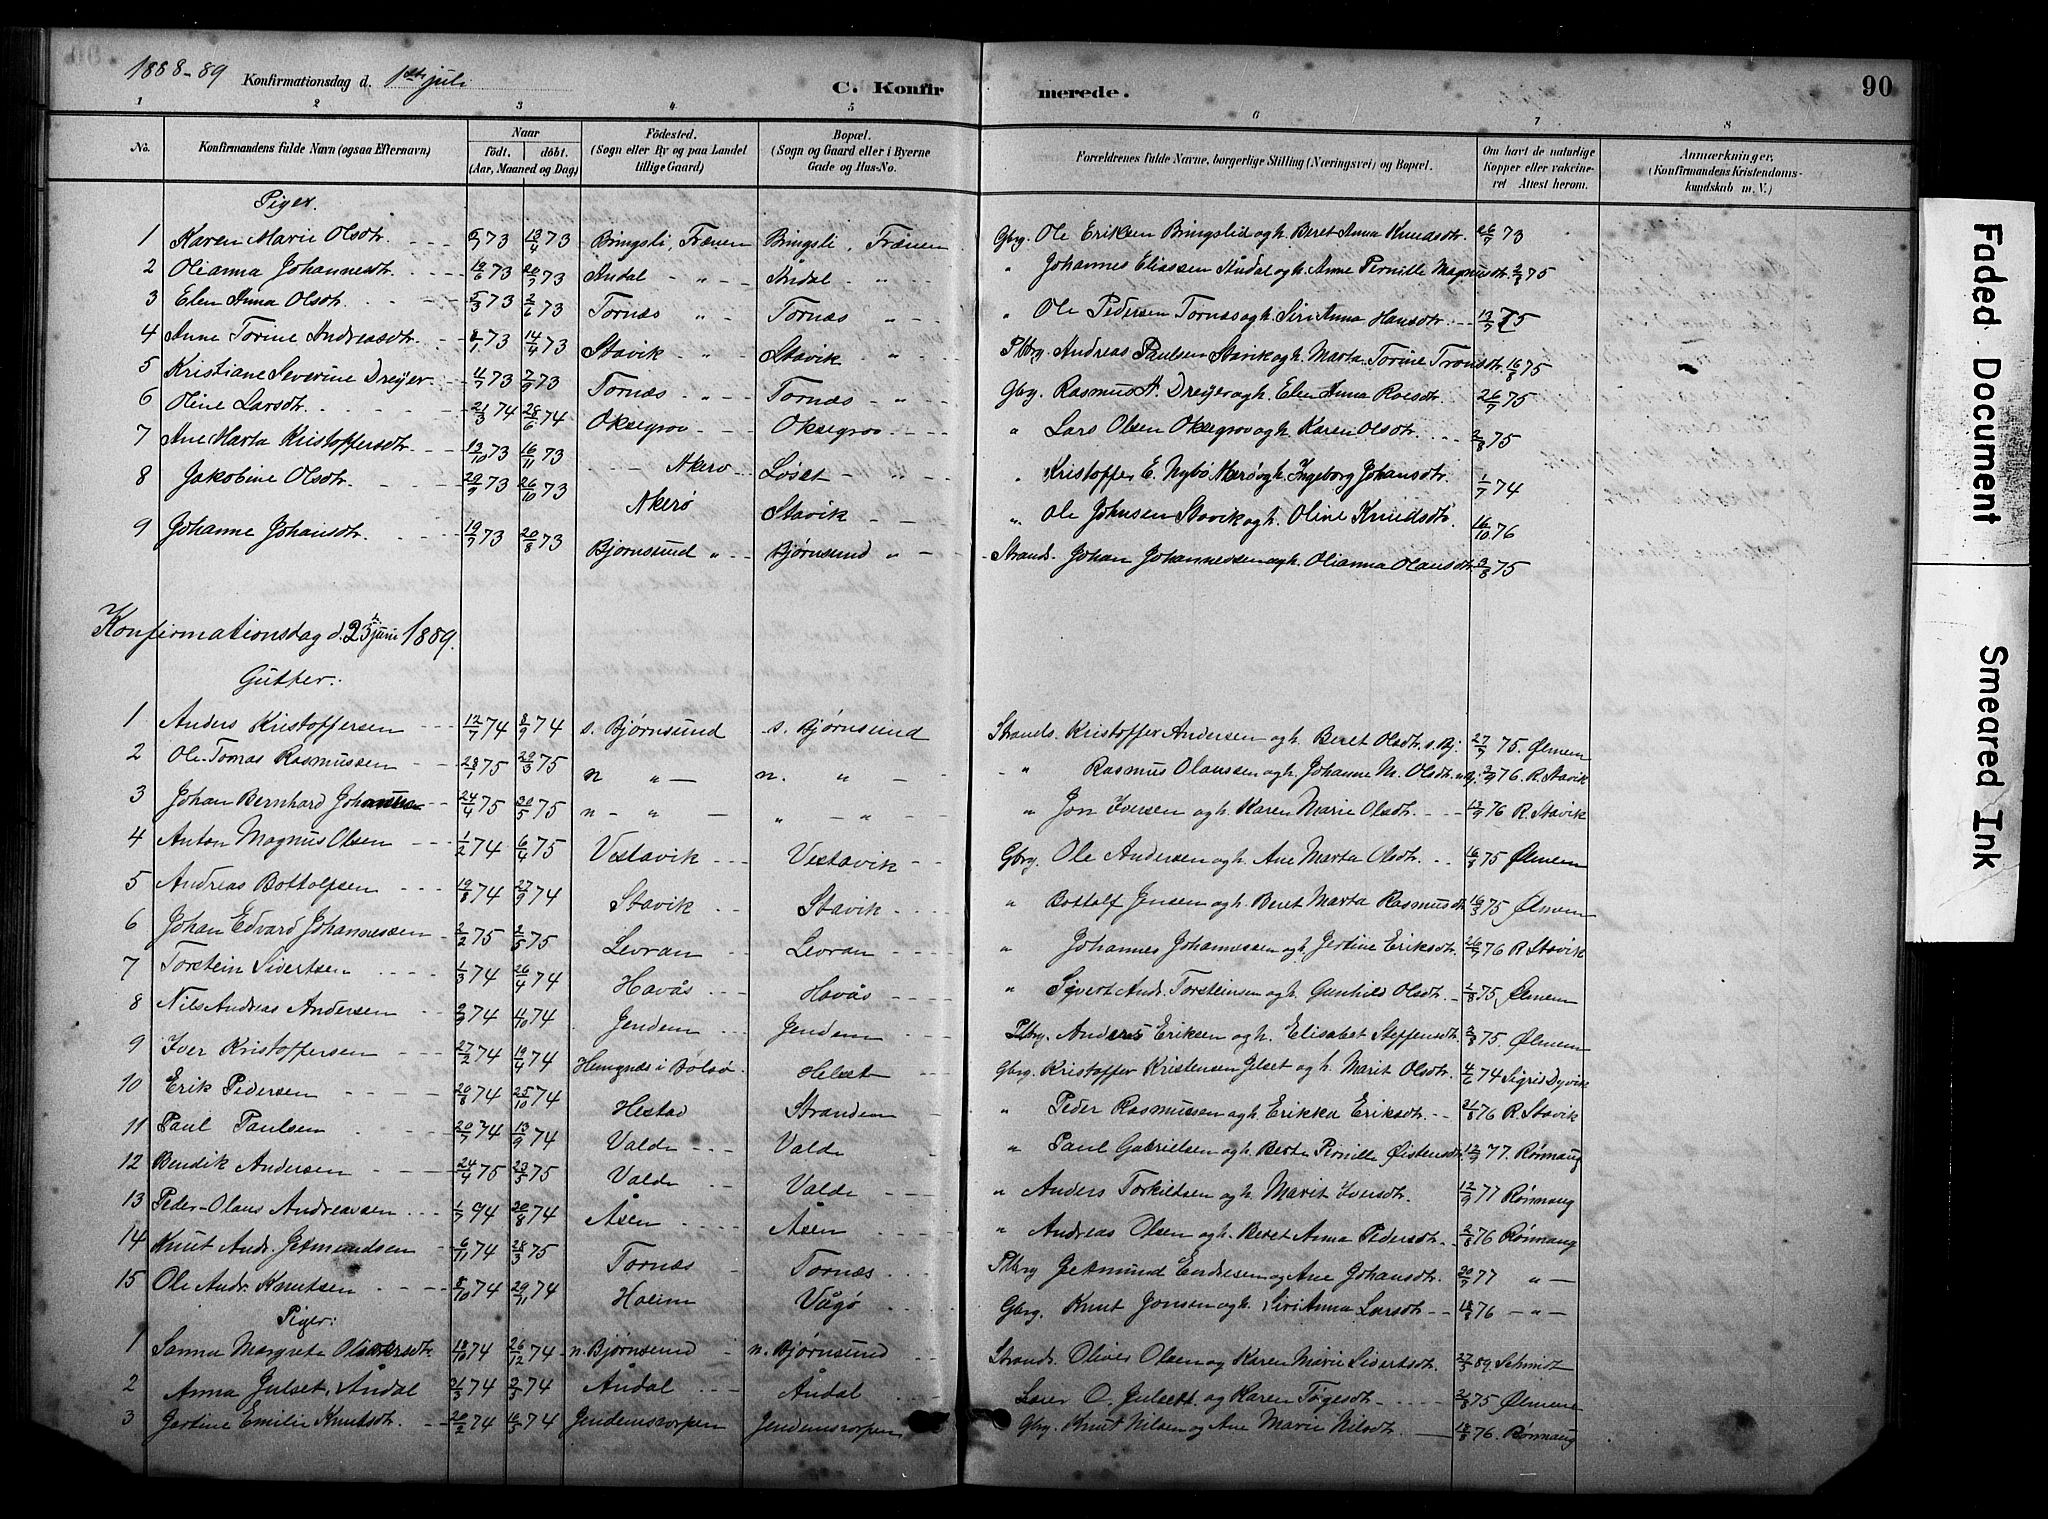 1888-89 Konfirmationsdag d. 1ste juli C. Konfirmerede. 90
1 2 3 4 5 6 7 8
No. Konfirmandens fulde Navn (ogsaa Efternavn) Naar født. døbt. (Aar, Maaned og Dag) Fødested. (Sogn eller By og paa Landet tillige Gaard) Bopæl. (Sogn og Gaard eller i Byerne Gade og Hus-No. Forældrenes fulde Navne, borgerlige Stilling (Næringsvei) og Bopæl. Om havt de naturlige Kopper eller vakcineret Attest herom. Anmærkninger. (Konfirmandens Kristendomskundskab m. V.)
Piger.
1 Karen Marie Olsdtr. 73 13/4 73 Bringsli, Frænen Bringsli, Frænen Gbrg. Ole Eriksen Bringslid og h. Beret Anna Knudsdtr. 26/7 73
2 Olianna Johannesdtr. 19/6 73 20/7 73 Aandal " Aandal " " Johannes Eliassen Aandal og h. Anne Pernille Magnusdtr. 2/8 75
3 Elen Anna Olsdtr. 5/3 73 2/6 73 Tornæs " Tornæs " " Ole Pedersen Tornæs og h. Siri Anna Hansdtr. 13/7 75
4 Anne Torine Andreasdtr. 73 14/4 73 Stavik " Stavik " Plbrg. Andreas Paulsen Stavik og h. Marta Torine Tronsdtr. 16/8 75
5 Kristiane Severine Dreyer 4/7 73 7/9 73 Tornæs " Tornæs " Gbrg. Rasmus A. Dreyer og h. Elen Anna Roesdtr. 26/7 75
6 Oline Larsdtr. 21/3 74 28/6 74 Oksegrov Oksegrov " Lars Olsen Oksegrov og h. Karen Olsdtr. 2/8 75
7 Ane Marta Kristoffersdtr. 13/10 73 16/11 73 Akerø Løset " " Kristoffer E. Nybø Akerø og h. Ingeborg Johansdtr. 1/7 74
8 Jakobine Olsdtr. 29/9 73 26/10 73 Akerø Stavik " Ole Johnsen Stavik og h. Oline Knudsdtr. 16/10 76
9 Johanne Johansdtr. 19/7 73 20/8 73 Bjørnsund " Bjørnsund " Strands. Johan Johannessen og h. Olianna Olausdtr. 75
Konfirmationsdag d. 23 juni 1889.
Gutter:
1 Anders Kristoffersen 12/7 74 8/9 74 s. Bjørnsund s. Bjørnsund Strands. Kristoffer Andersen og h. Beret Olsdtr. s. Bj. 27/7 75. Ølmem
2 Ole Tomas Rasmussen 28/1 75 29/3 75 n " n. " " Rasmus Olaussen og h. Johanne M. Olsdtr. 76 R. Stavik
3 Johan Bernhard Johansen 24/4 75 30/5 75 n " " " " Jon Iversen og h. Karen Marie Olsdtr. 13/9 76 R. Stavik
4 Anton Magnus Olsen 1/2 74 6/4 75 Vestavik Vestavik Gbrg. Ole Andersen og h. Ane Marta Olsdtr. 16/8 75 Ølmem
5 Andreas Bottolfsen 19/8 74 27/9 74 Stavik Stavik " Bottolf Jensen og h. Beret Marta Rasmusdtr. 75 Ølmem
6 Johan Edvard Johannessen 2/2 75 2/5 75 Levran Levran " Johannes Johannessen og h. Jertine Eriksdtr. 26/9 76 R. Stavik
7 Torstein Sivertsen 1/3 74 26/4 74 Havås Havås " Sivert Andr. Torsteinsen og h. Gunhild Olsdtr. 1/8 75, Ølmem
8 Nils Andreas Andersen 2/9 74 4/10 74 Jendem Jendem Plbrg. Anders Eriksen og h. Elisabet Steffensdtr. 2/8 75. Ølmem
9 Iver Kristoffersen 27/2 74 19/4 74 Hemgnæs i Bolsø Helset Gbrg. Kristoffer Kristensen Jelset og h. Marit Olsdtr. 4/6 74 Sigrid Dyvik
10 Erik Pedersen 20/8 74 25/10 74 Hestad Stranden " Peder Rasmussen og h. Erikka Eriksdtr. 21/8 76 R. Stavik
11 Paul Paulsen 20/7 74 13/9 74 Valde Valde " Paul Gabrielsen og h. Berte Pernille Øistensdtr. 12/9 77. Rønnaug
12 Bendik Andersen 24/4 75 23/5 75 Valde Valde " Anders Torkildsen og h. Marit Iversdtr. 12/9 77 Rønnaug
13 Peder-Olaus Andreassen 1/7 94 20/8 74 Åsen Åsen " Andreas Olsen og h. Beret Anna Pedersdtr. 2/8 76 Rønnaug
14 Knut Andr. Jetmundsen 6/11 74 28/3 75 Tornæs Tornæs Plbrg Jetmund Endresen og Ane Johansdtr. 20/7 77 "
15 Ole Andr. Knutsen 8/10 74 29/11 74 Holme Vågø Gbrg. Knut Jonsen og h. Siri Anna Larsdtr. 18/8 76 "
Piger:
1 Sanna Margrete Oliversdtr. 18/10 74 26/12 74 n. Bjørnsund n. Bjørnsund Strands. Oliver Olsen og Karen Marie Sivertsdtr. 27/3 89 Schmidt
2 Anna Julset, Åndal 31/3 74 2/5 74 Åndal Åndal Lærer O. Julset og Karen Tøgesdtr. 21/8 75 Ølmem
3 Jertine Emilie Knutsdtr. 20/2 74 10/5 74 Jendemsvorpen Jendemsvorpen Gbrg. Knut Nilsen og Ane Marie Nilsdtr. 18/8 76. Rønnaug
Faded Document
Smeared Ink